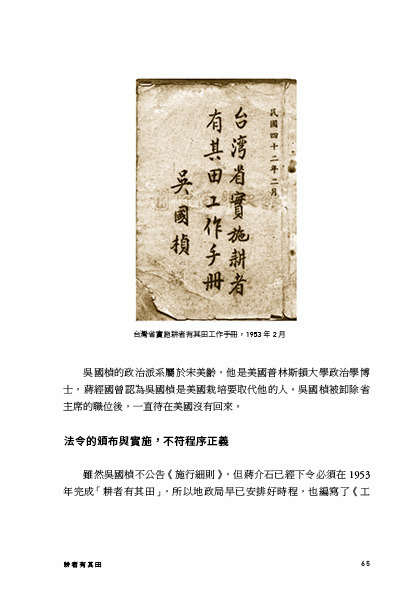 民國四十二年二月
台湾省實施耕者
有其田工作手冊
吳國楨
台灣省實施耕者有其田工作手冊，1953 年 2 月
吳國楨的政治派系屬於宋美齡，他是美國普林斯頓大學政治學博
士，蔣經國曾認為吳國楨是美國栽培要取代他的人。吳國楨被卸除省
主席的職位後，一直待在美國沒有回來。
法令的頒布與實施，不符程序正義
雖然吳國楨不公告《施行細則》，但蔣介石已經下令必須在 1953
年完成「耕者有其田」，所以地政局早已安排好時程，也編寫了《工
耕者有其田
65